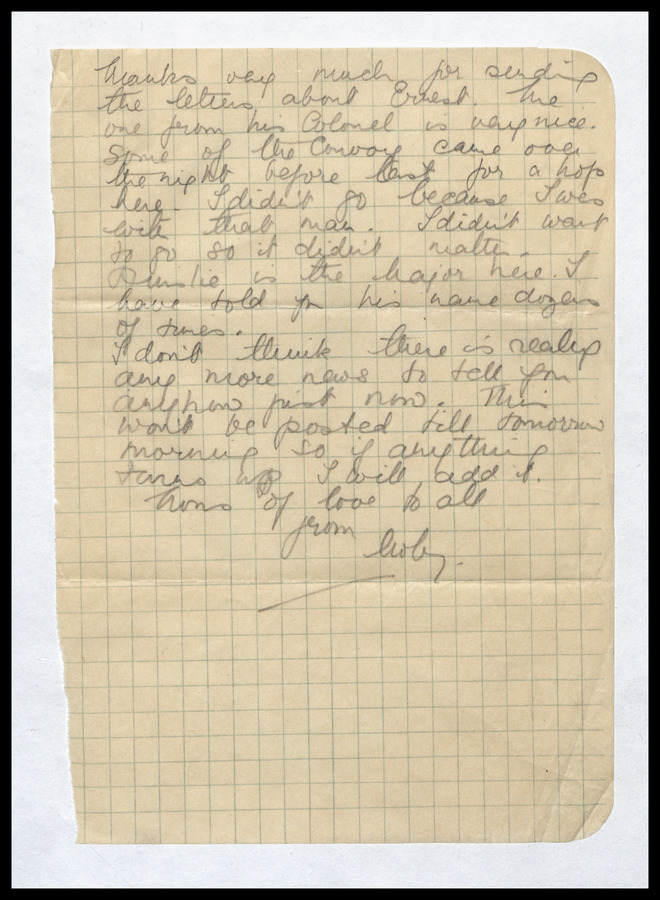 Thanks very much for sending
the letters about Ernest. The
one from his Colonel is very nice.
Some of the Convoy came over
the night before last for a hop
here. I didn't go because I was
with that man. I didn't want
to go so it didn't matter.
Ainslie is the Major here. I
have told you his name dozens
of times.
I don't think there is really
any more news to tell you
anyhow just now. This
won't be posted till tomorrow
morning so if anything
turns up I will add it.
Tons of love to all
from